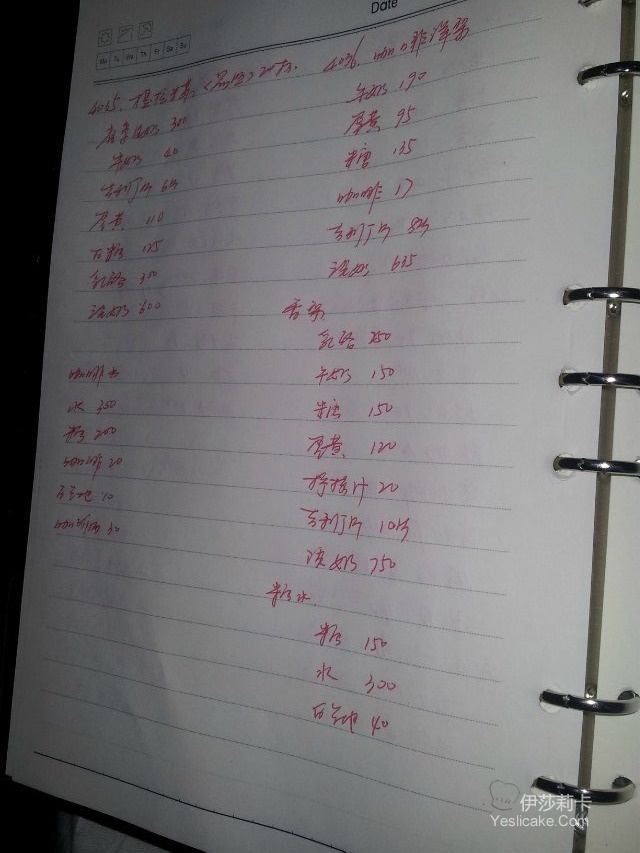 Date
Mo Tu We Th Fr Sa Su
4035. 提拉米苏
牛奶 40
吉利丁片 6片
蛋黄 110
白糖 125
乳酪 350
淡奶 600
咖啡水
水 300
糖 200
咖啡 20
百兰地 10
咖啡酒 30
4036. 咖啡
牛奶 190
蛋黄 95
糖 135
咖啡 17
吉利丁片 8片
淡奶 635
乳酪 250
牛奶 150
糖 150
蛋黄 120
柠檬汁 20
吉利丁片 10片
淡奶 750
糖水.
糖 150
水 300
百兰地 40
伊莎莉卡
Yeslicake.Com